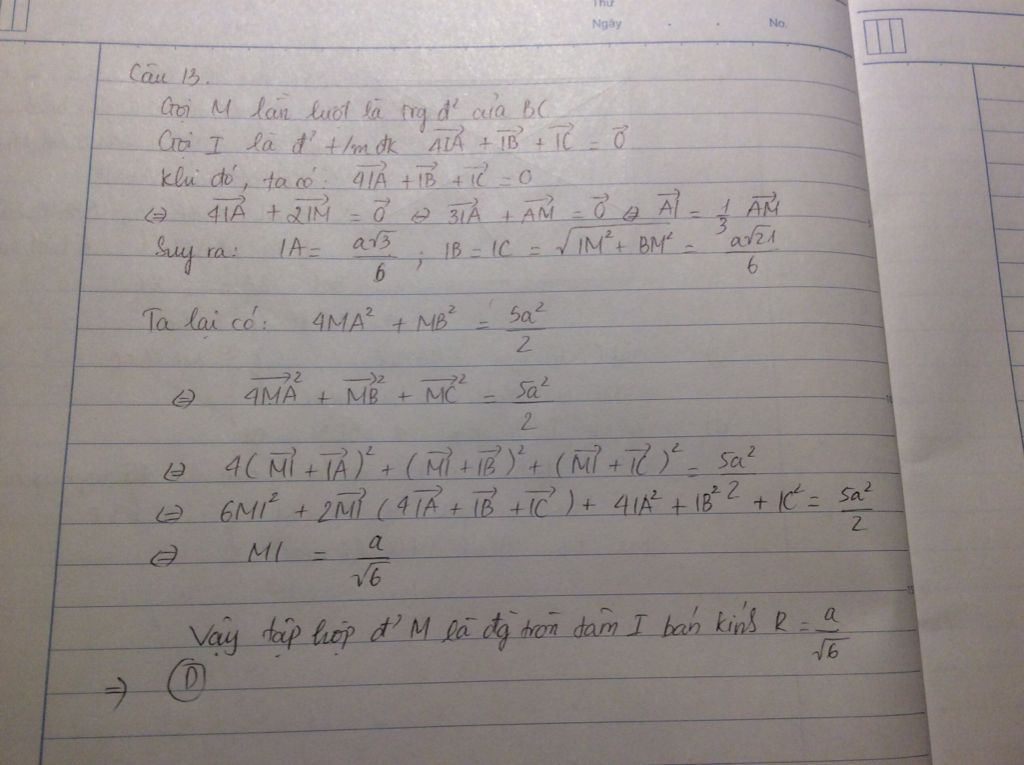 Thứ
Ngày . . No.
Câu 13.
Gọi M lần lượt là trg đ² của BC
Gọi I là đ² t/m đk 4\overrightarrow{IA} + \overrightarrow{IB} + \overrightarrow{IC} = \vec{0}
Khi đó, ta có: 4\overrightarrow{IA} + \overrightarrow{IB} + \overrightarrow{IC} = 0
⇔ 4\overrightarrow{IA} + 2\overrightarrow{IM} = \vec{0} ⇔ 3\overrightarrow{IA} + \overrightarrow{AM} = \vec{0} ⇔ \overrightarrow{AI} = \frac{1}{3} \overrightarrow{AM}
Suy ra: IA = \frac{a√3}{6} ; IB = IC = \sqrt{IM² + BM²} = \frac{a√21}{6}
Ta lại có: 4MA² + MB² = \frac{5a²}{2}
⇔ \overrightarrow{4MA}² + \overrightarrow{MB}² + \overrightarrow{MC}² = \frac{5a²}{2}
⇔ 4(\overrightarrow{MI} + \overrightarrow{IA})² + (\overrightarrow{MI} + \overrightarrow{IB})² + (\overrightarrow{MI} + \overrightarrow{IC})² = \frac{5a²}{2}
⇔ 6MI² + 2\overrightarrow{MI} (4\overrightarrow{IA} + \overrightarrow{IB} + \overrightarrow{IC}) + 4IA² + IB² + IC² = \frac{5a²}{2}
⇔ MI = \frac{a}{√6}
Vậy tập hợp đ² M là đg tròn tâm I bán kính R = \frac{a}{√6}
⇒ D